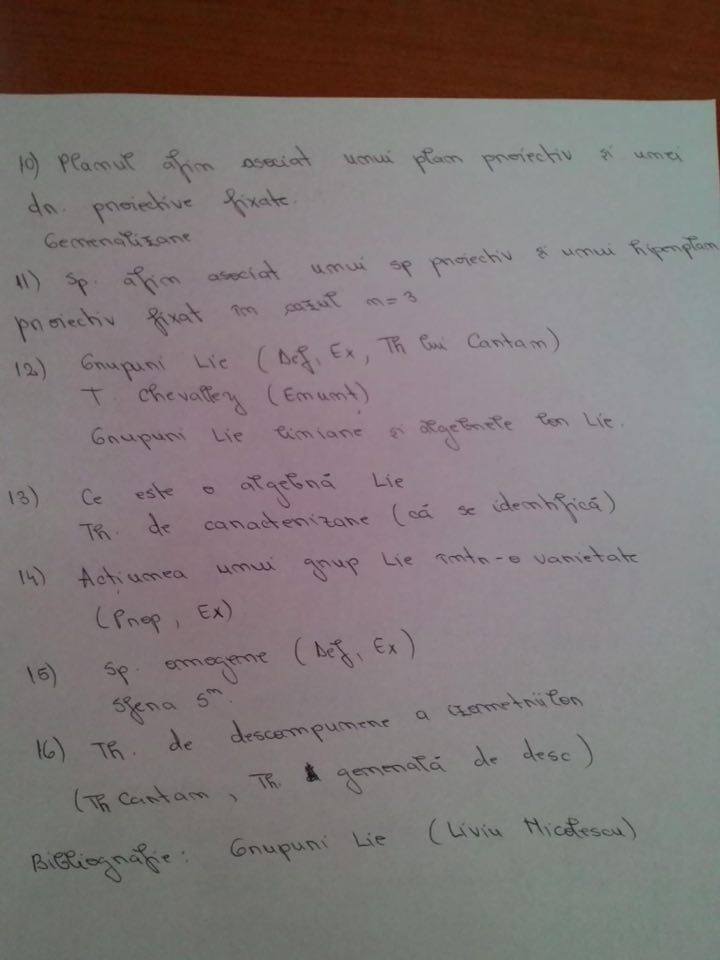 10) Planul afin asociat unui plan proiectiv și unei
dr. proiective fixate.
Generalizare
11) Sp. afin asociat unui sp proiectiv și unui hiperplan
proiectiv fixat în cazul n=3
12) Grupuri Lie (Def, Ex, Th lui Cartan)
T. Chevalley (Enunț)
Grupuri Lie liniare și algebrele lor Lie.
13) Ce este o algebră Lie
Th. de caracterizare (că se identifică)
14) Acțiunea unui grup Lie într-o varietate
(Prop, Ex)
15) Sp. omogene (Def, Ex)
Sfera Sⁿ.
16) Th. de descompunere a izometriilor
(Th Cartan, Th. generală de desc)
Bibliografie: Grupuri Lie (Liviu Nicolescu)